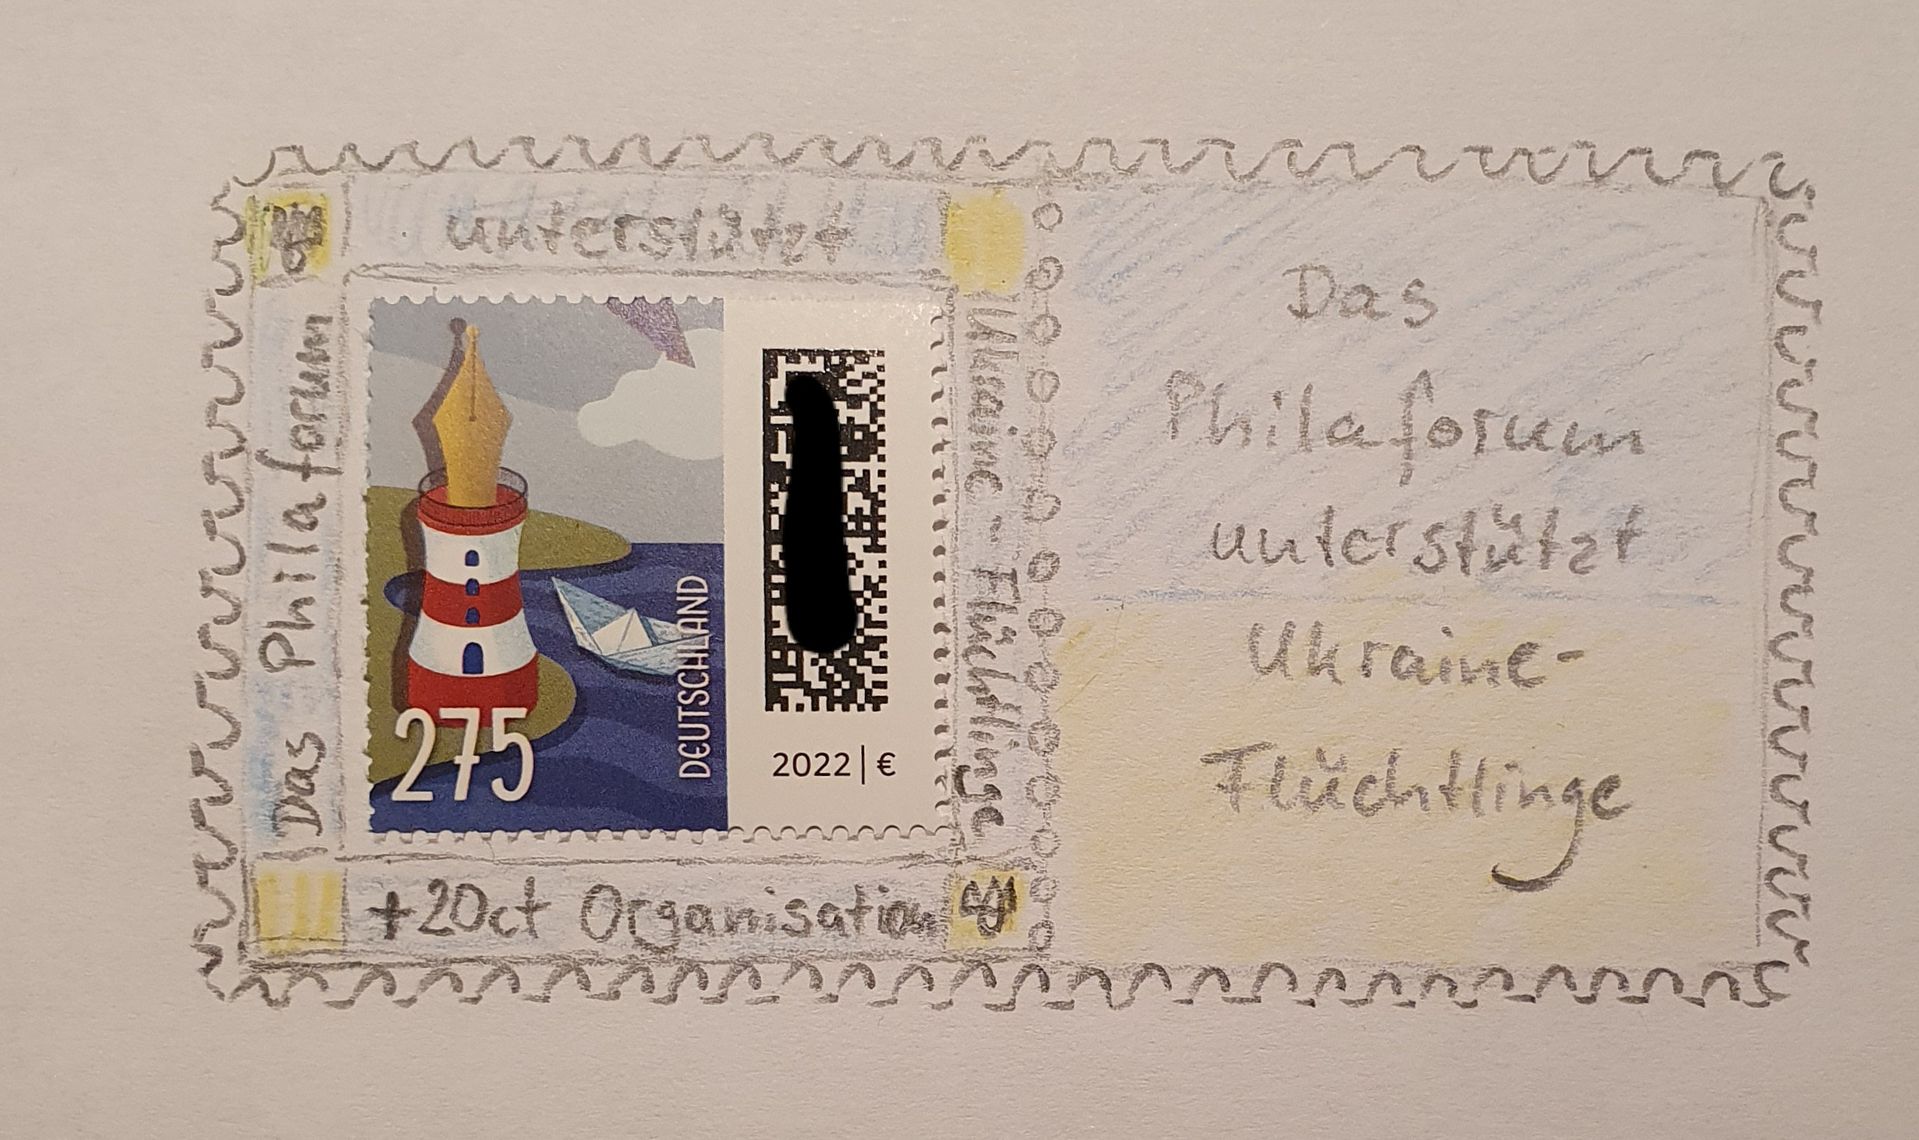 unterstützt
Das Philaforum
Ukraine-Flüchtlinge
275
DEUTSCHLAND
2022|€
+20ct Organisation
Das
Philaforum
unterstützt
Ukraine-
Flüchtlinge